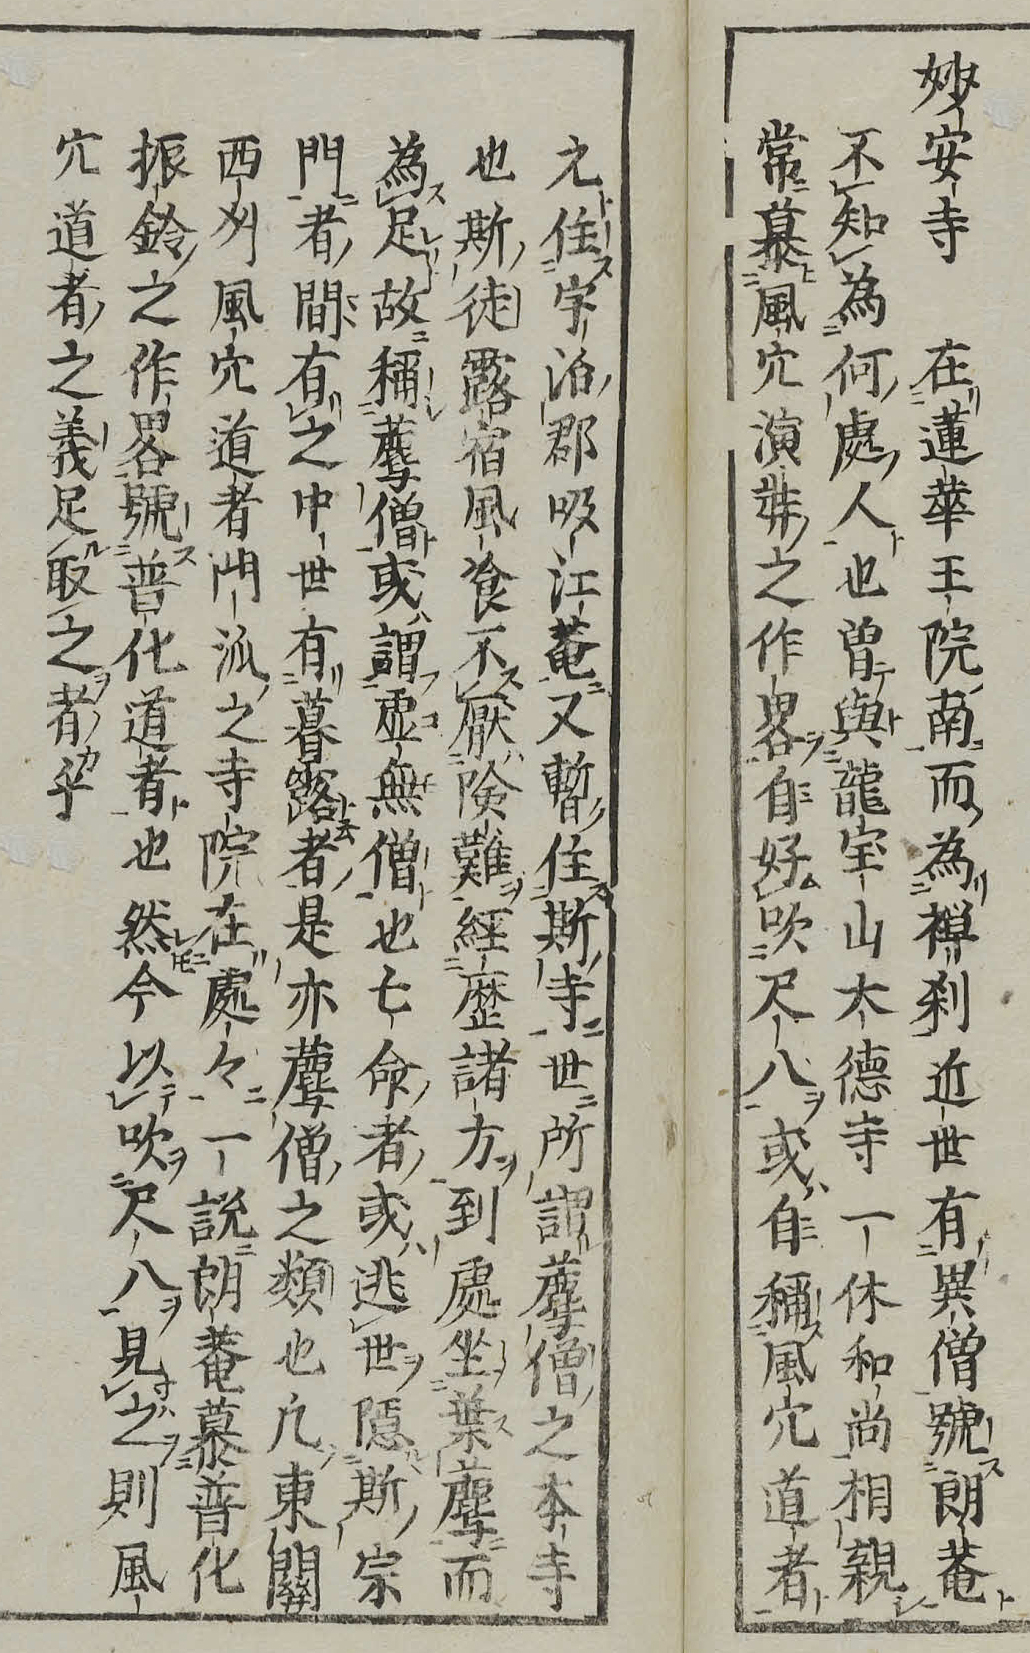 妙安寺　在蓮華王院南而為禅刹近世有異僧號朗菴
不知為何處人也曽與龍宝山大德寺一休和尚相親
常慕風穴演奘之作畧自好吹尺八或自稱風穴道者
元住宇治郡吸江菴又暫住斯寺世所謂薦僧之本寺
也斯徒露宿風飡不厭険難經歴諸方到處坐薦而
為足故稱薦僧或謂虚無僧也亡命者或逃世隠斯宗
門者間有之中世有暮露者是亦薦僧之類也凢東關
西州風穴道者門派之寺院在處々一說朗菴慕普化
振鈴之作畧號普化道者也然今以吹尺八見之則風
穴道者之義足取之者乎